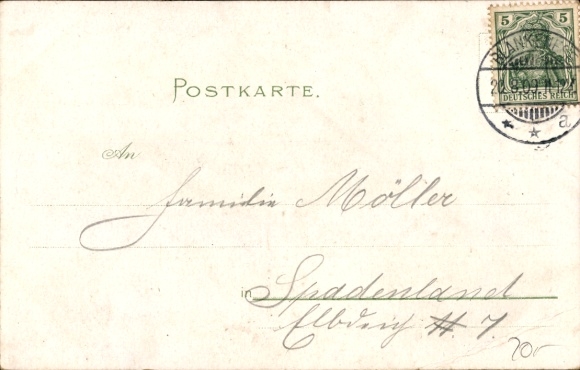 5 5
DEUTSCHES REICH
POSTKARTE.
An
Familie Möller
in Spadenland
Elbdeich # 7